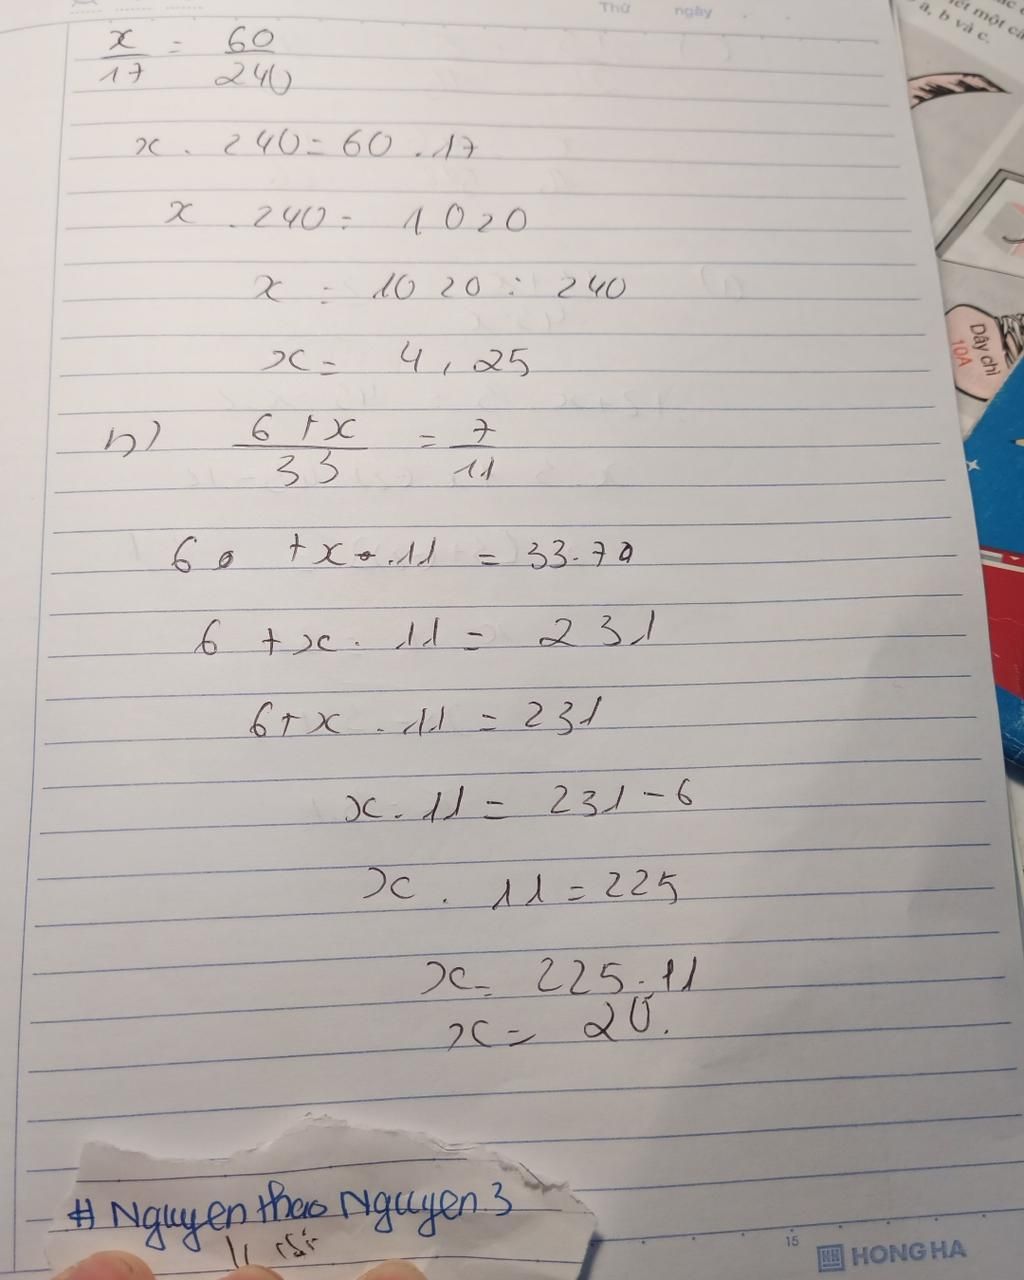 Thứ ngày
x/17 = 60/240
x . 240 = 60 . 17
x . 240 = 1020
x = 1020 : 240
x = 4,25
b) 6+x/33 = 7/11
6 +x . 11 = 33.7
6 +x . 11 = 231
6+x . 11 = 231
x . 11 = 231 - 6
x . 11 = 225
x = 225 . 11
x = 20.
# Nguyen thao Nguyen 3
15 HONG HA
một
a, b và c.
Dây chì
10A